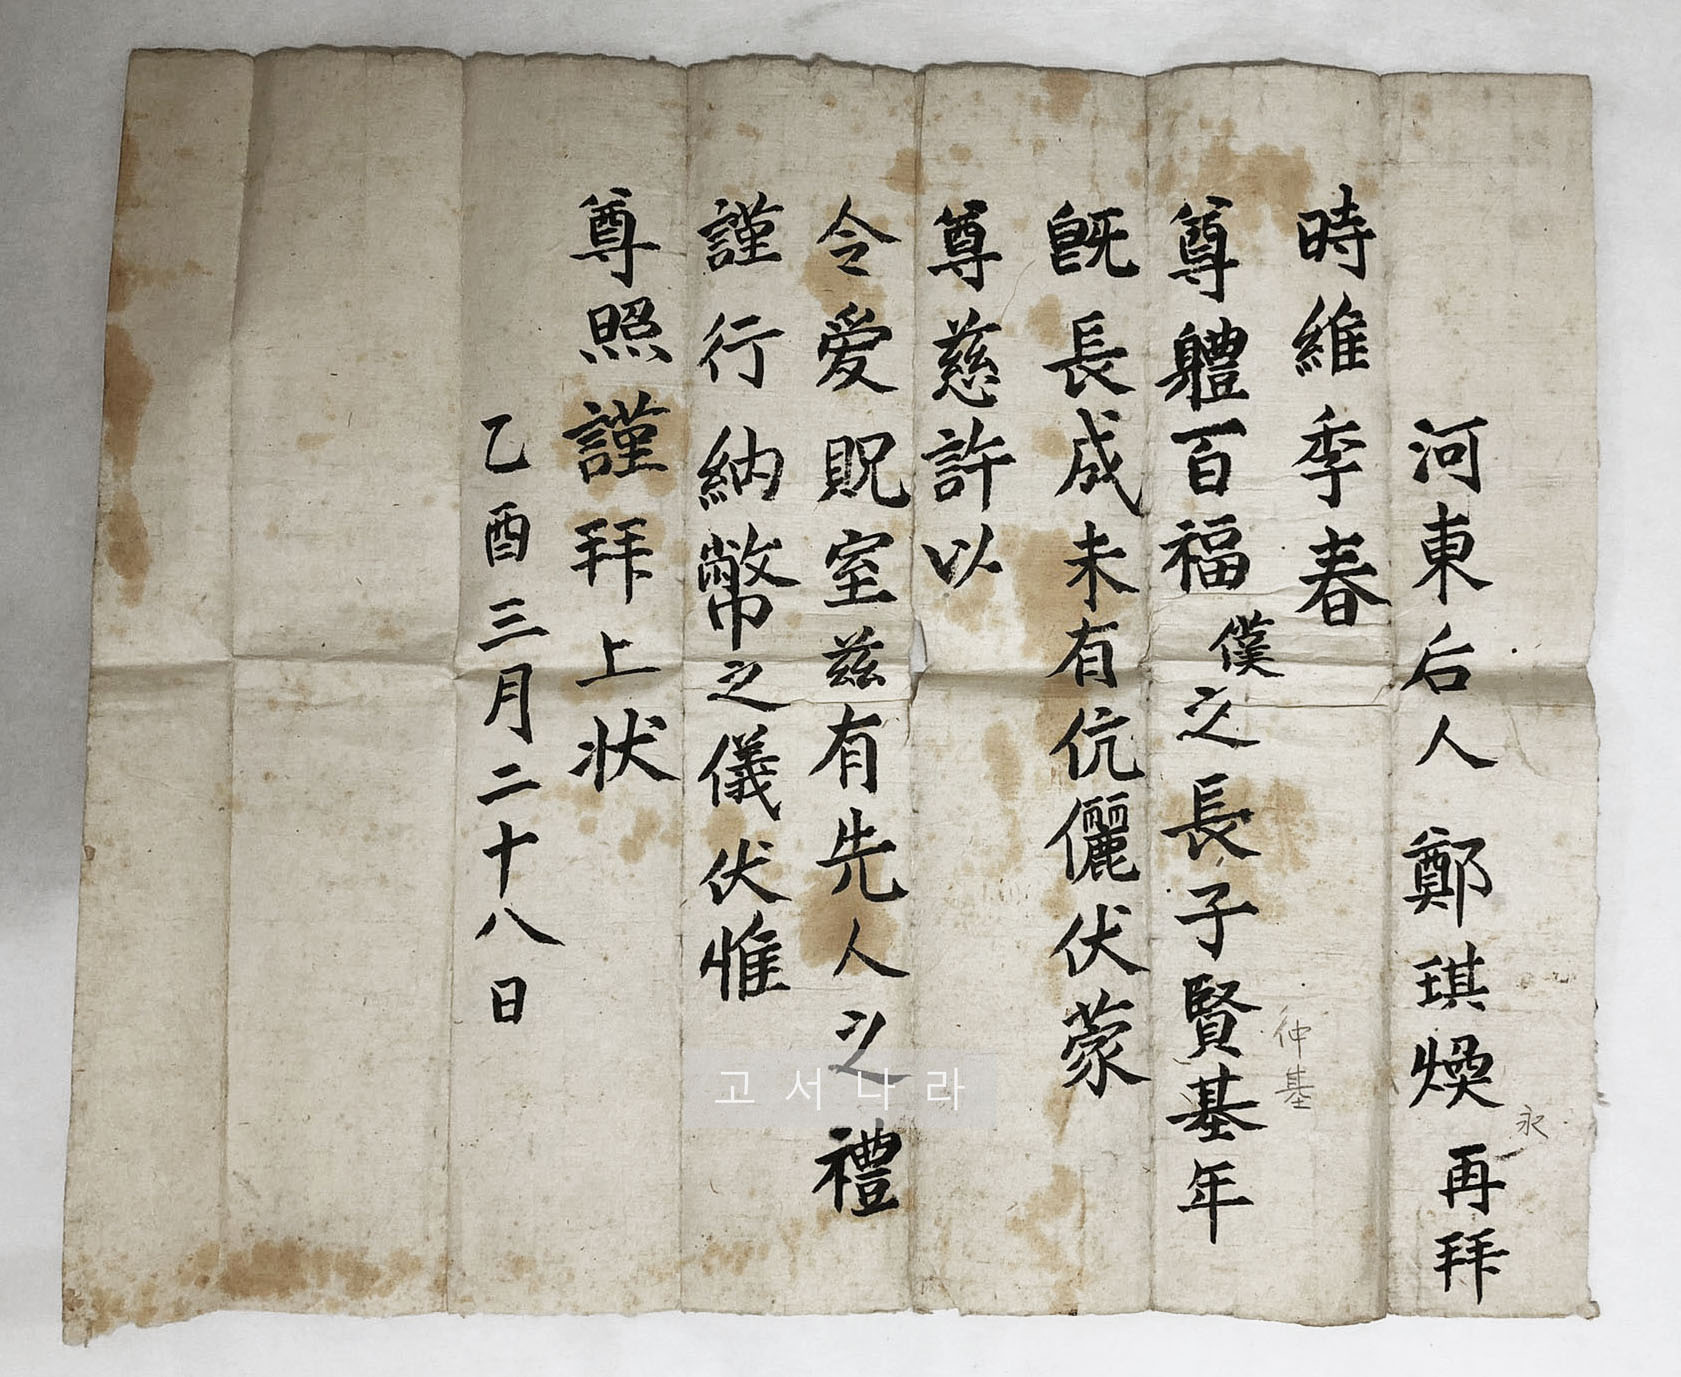 河東后人 鄭琪煥 再拜
永
時維季春
尊軆百福僕之長子賢基年
仲基
旣長成未有伉儷伏蒙
尊慈許以
令爱貺室兹有先人之禮
謹行納幣之儀伏惟
尊照謹拜上状
乙酉三月二十八日
고서나라